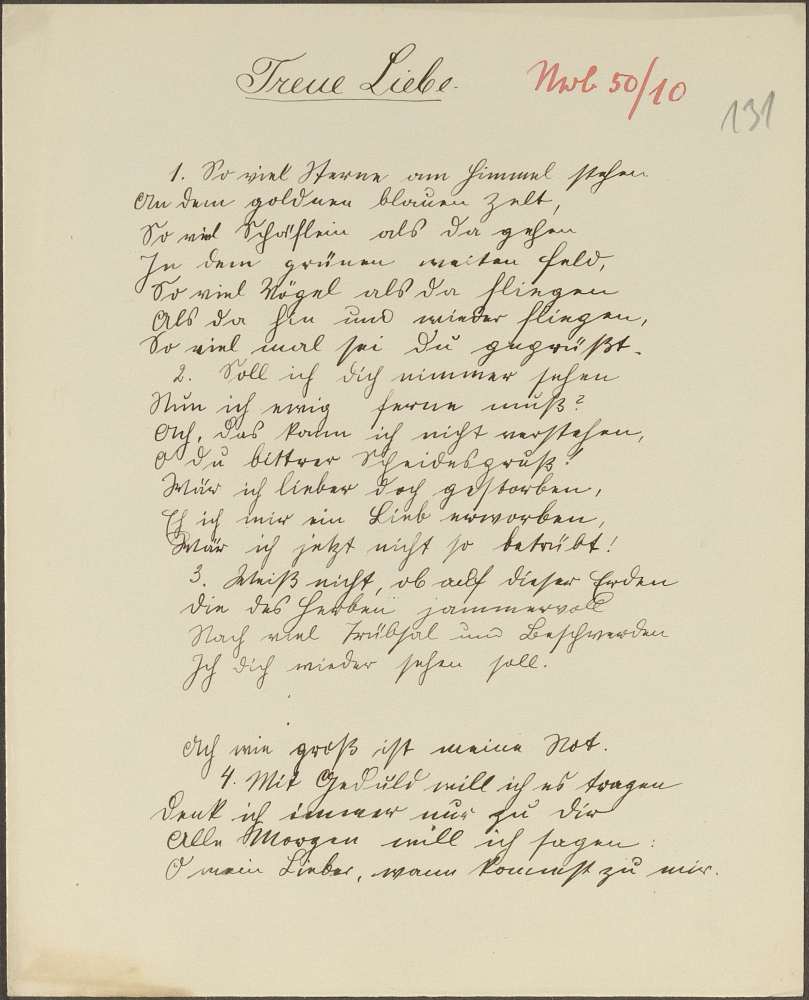 Treue Liebe.
Nrb 50/10
131
1. So viel Sterne am Himmel stehen
An dem goldnen blauen Zelt,
So viel Schäflein als da gehen
In dem grünen weiten Feld,
So viel Vögel als da fliegen
Als da hin und wieder fliegen,
So viel mal sei du gegrüßt.
2. Soll ich dich nimmer sehen
Nun ich ewig ferne muß?
Ach, das kann ich nicht verstehen,
O du bittrer Scheidesgruß!
Wär ich lieber doch gestorben,
Eh ich mir ein Lieb erworben,
Wär ich jetzt nicht so betrübt!
3. Weiß nicht, ob auf dieser Erden
Die des Herben jammervoll
Nach viel Trübsal und Beschwerden
Ich dich wieder sehen soll.
Ach wie groß ist meine Not.
4. Mit Geduld will ich es tragen
Denk ich immer nur zu dir
Alle Morgen will ich sagen:
O mein Lieber, wann kommst zu mir.